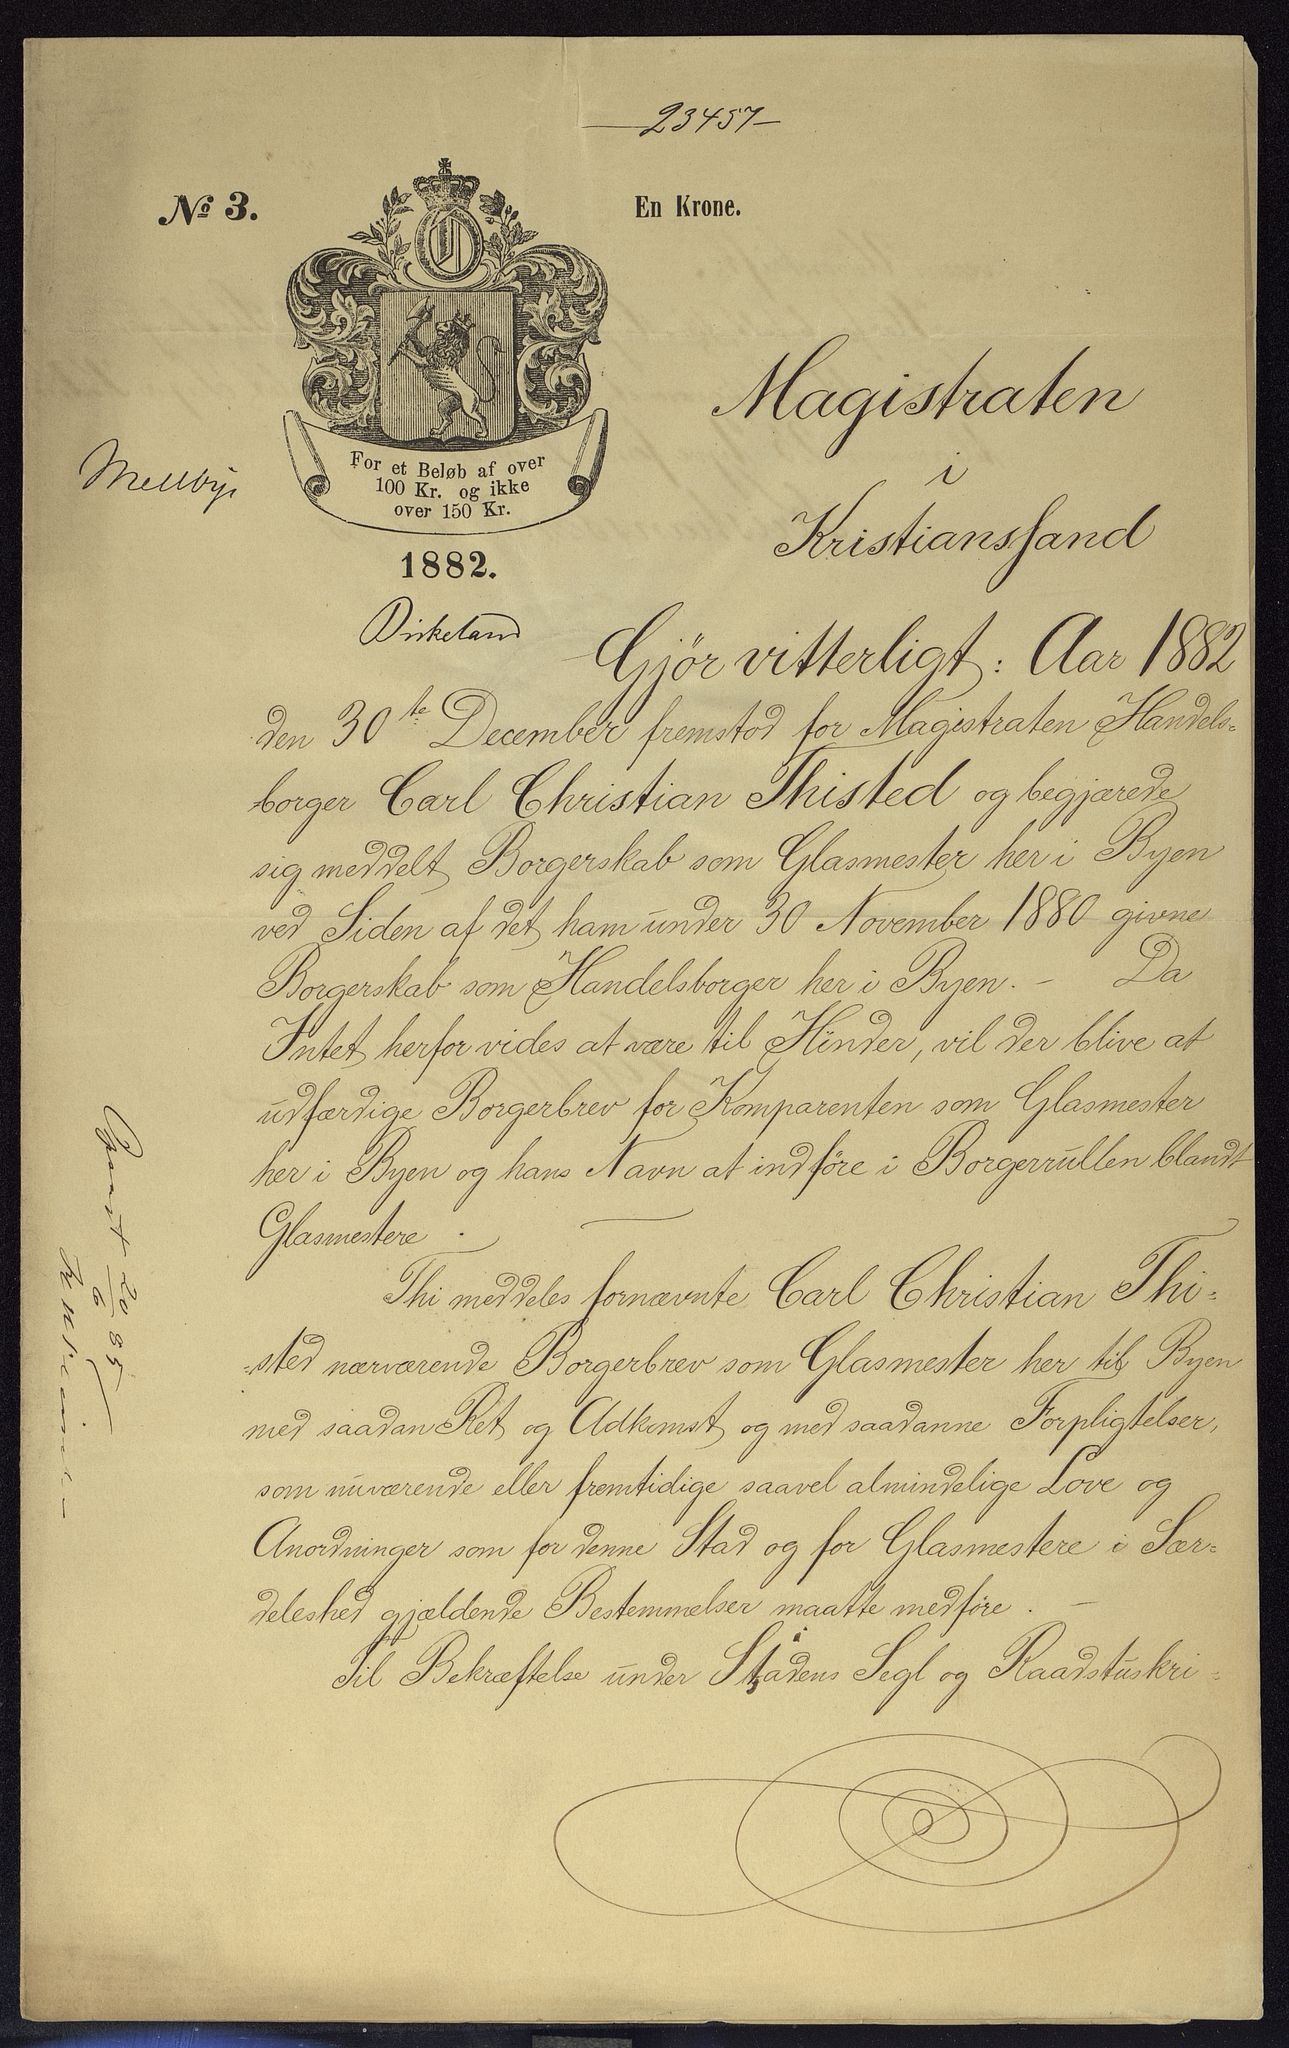 23457
No 3.
En Krone.
For et Beløb af over
100 Kr. og ikke
over 150 Kr.
1882.
Mellbye
Birkeland
Magistraten
i
Kristianssand
Gjör vitterligt: Aar 1882
den 30te December fremstod for Magistraten Handels-
borger Carl Christian Thisted og begjærede
sig meddelt Borgerskab som Glasmester her i Byen
ved Siden af det ham under 30 November 1880 givne
Borgerskab som Handelsborger her i Byen. - Da
Intet herfor vides at være til Hinder, vil der blive at
udfærdige Borgerbrev for Komparenten som Glasmester
her i Byen og hans Navn at indföre i Borgerrullen blandt
Glasmestere.
Thi meddeles fornævnte Carl Christian Thi-
sted nærværende Borgerbrev som Glasmester her til Byen
med saadan Ret og Adkomst og med saadanne Forpligtelser,
som nuværende eller fremtidige saavel almindelige Love og
Anordninger som for denne Stad og for Glasmestere i Sær-
deleshed gjældende Bestemmelser maatte medföre. -
Til Bekræftelse under Stadens Segl og Raadstuskri-
20/6 85